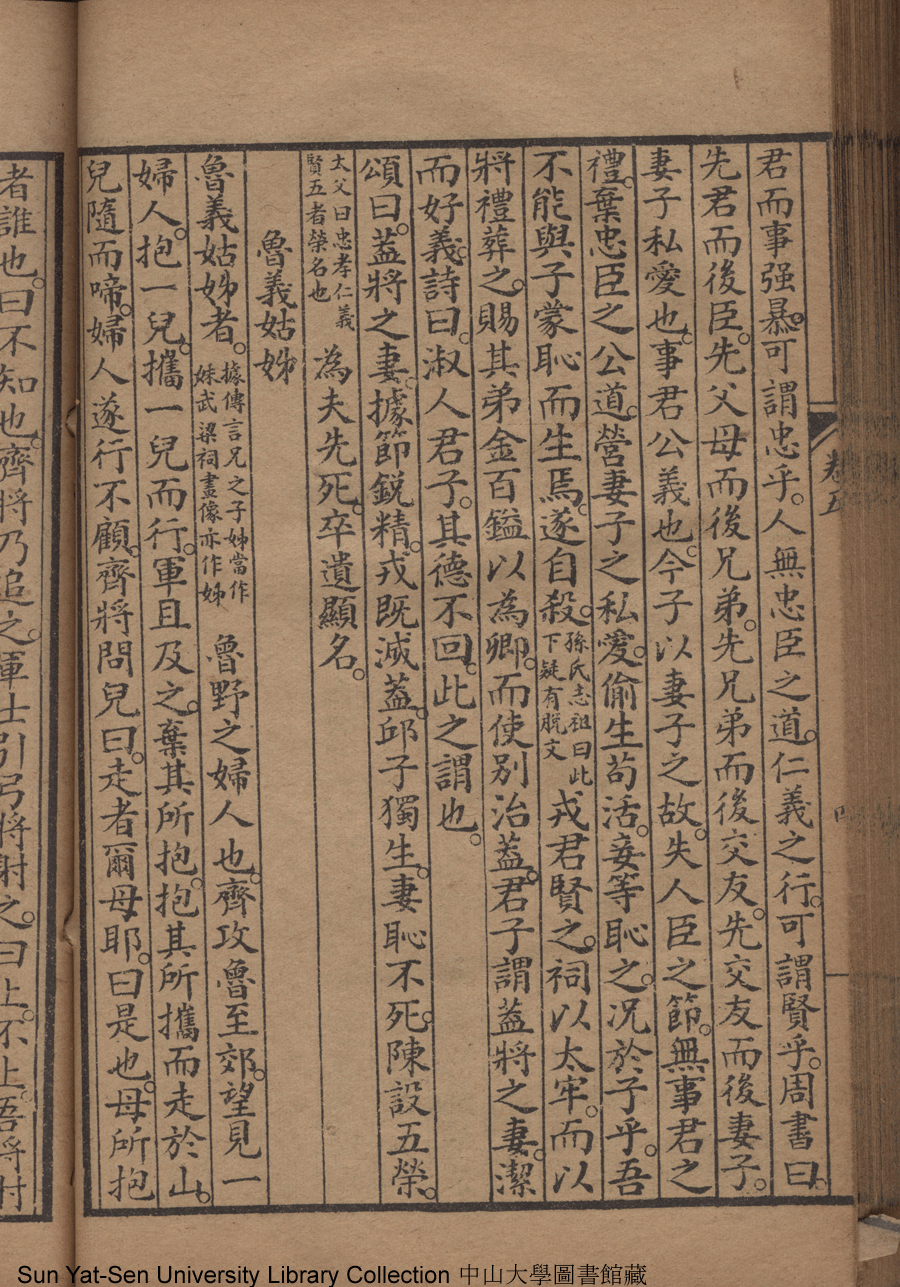 君而事强暴。可謂忠乎。人無忠臣之道。仁義之行。可謂賢乎。周書曰。
先君而後臣。先父母而後兄弟。先兄弟而後交友。先交友而後妻子。
妻子私愛也。事君公義也。今子以妻子之故。失人臣之節。無事君之
禮。棄忠臣之公道。營妻子之私愛。偷生苟活。妾等恥之。况於子乎。吾
不能與子蒙恥而生焉。遂自殺。孫氏志祖曰此下疑有脫文戎君賢之。祠以太牢。而以
將禮葬之。賜其弟金百鎰以為卿。而使別治蓋。君子謂蓋將之妻。潔
而好義。詩曰。淑人君子。其德不回。此之謂也。
頌曰。蓋將之妻。據節銳精。戎既滅蓋。邱子獨生。妻恥不死。陳設五榮。
太父曰忠孝仁義賢五者榮名也為夫先死。卒遺顯名。
魯義姑姊
魯義姑姊者。據傳言兄之子姊當作妹武梁祠畫像亦作姊魯野之婦人也。齊攻魯至郊。望見一
婦人。抱一兒。攜一兒而行。軍且及之。棄其所抱。抱其所攜而走於山。
兒隨而啼。婦人遂行不顧。齊將問兒曰。走者爾母耶。曰是也。母所抱
者誰也。曰不知也。齊將乃追之。軍士引弓將射之。曰止。不止。吾將射
卷五
Sun Yat-Sen University Library Collection 中山大學圖書館藏